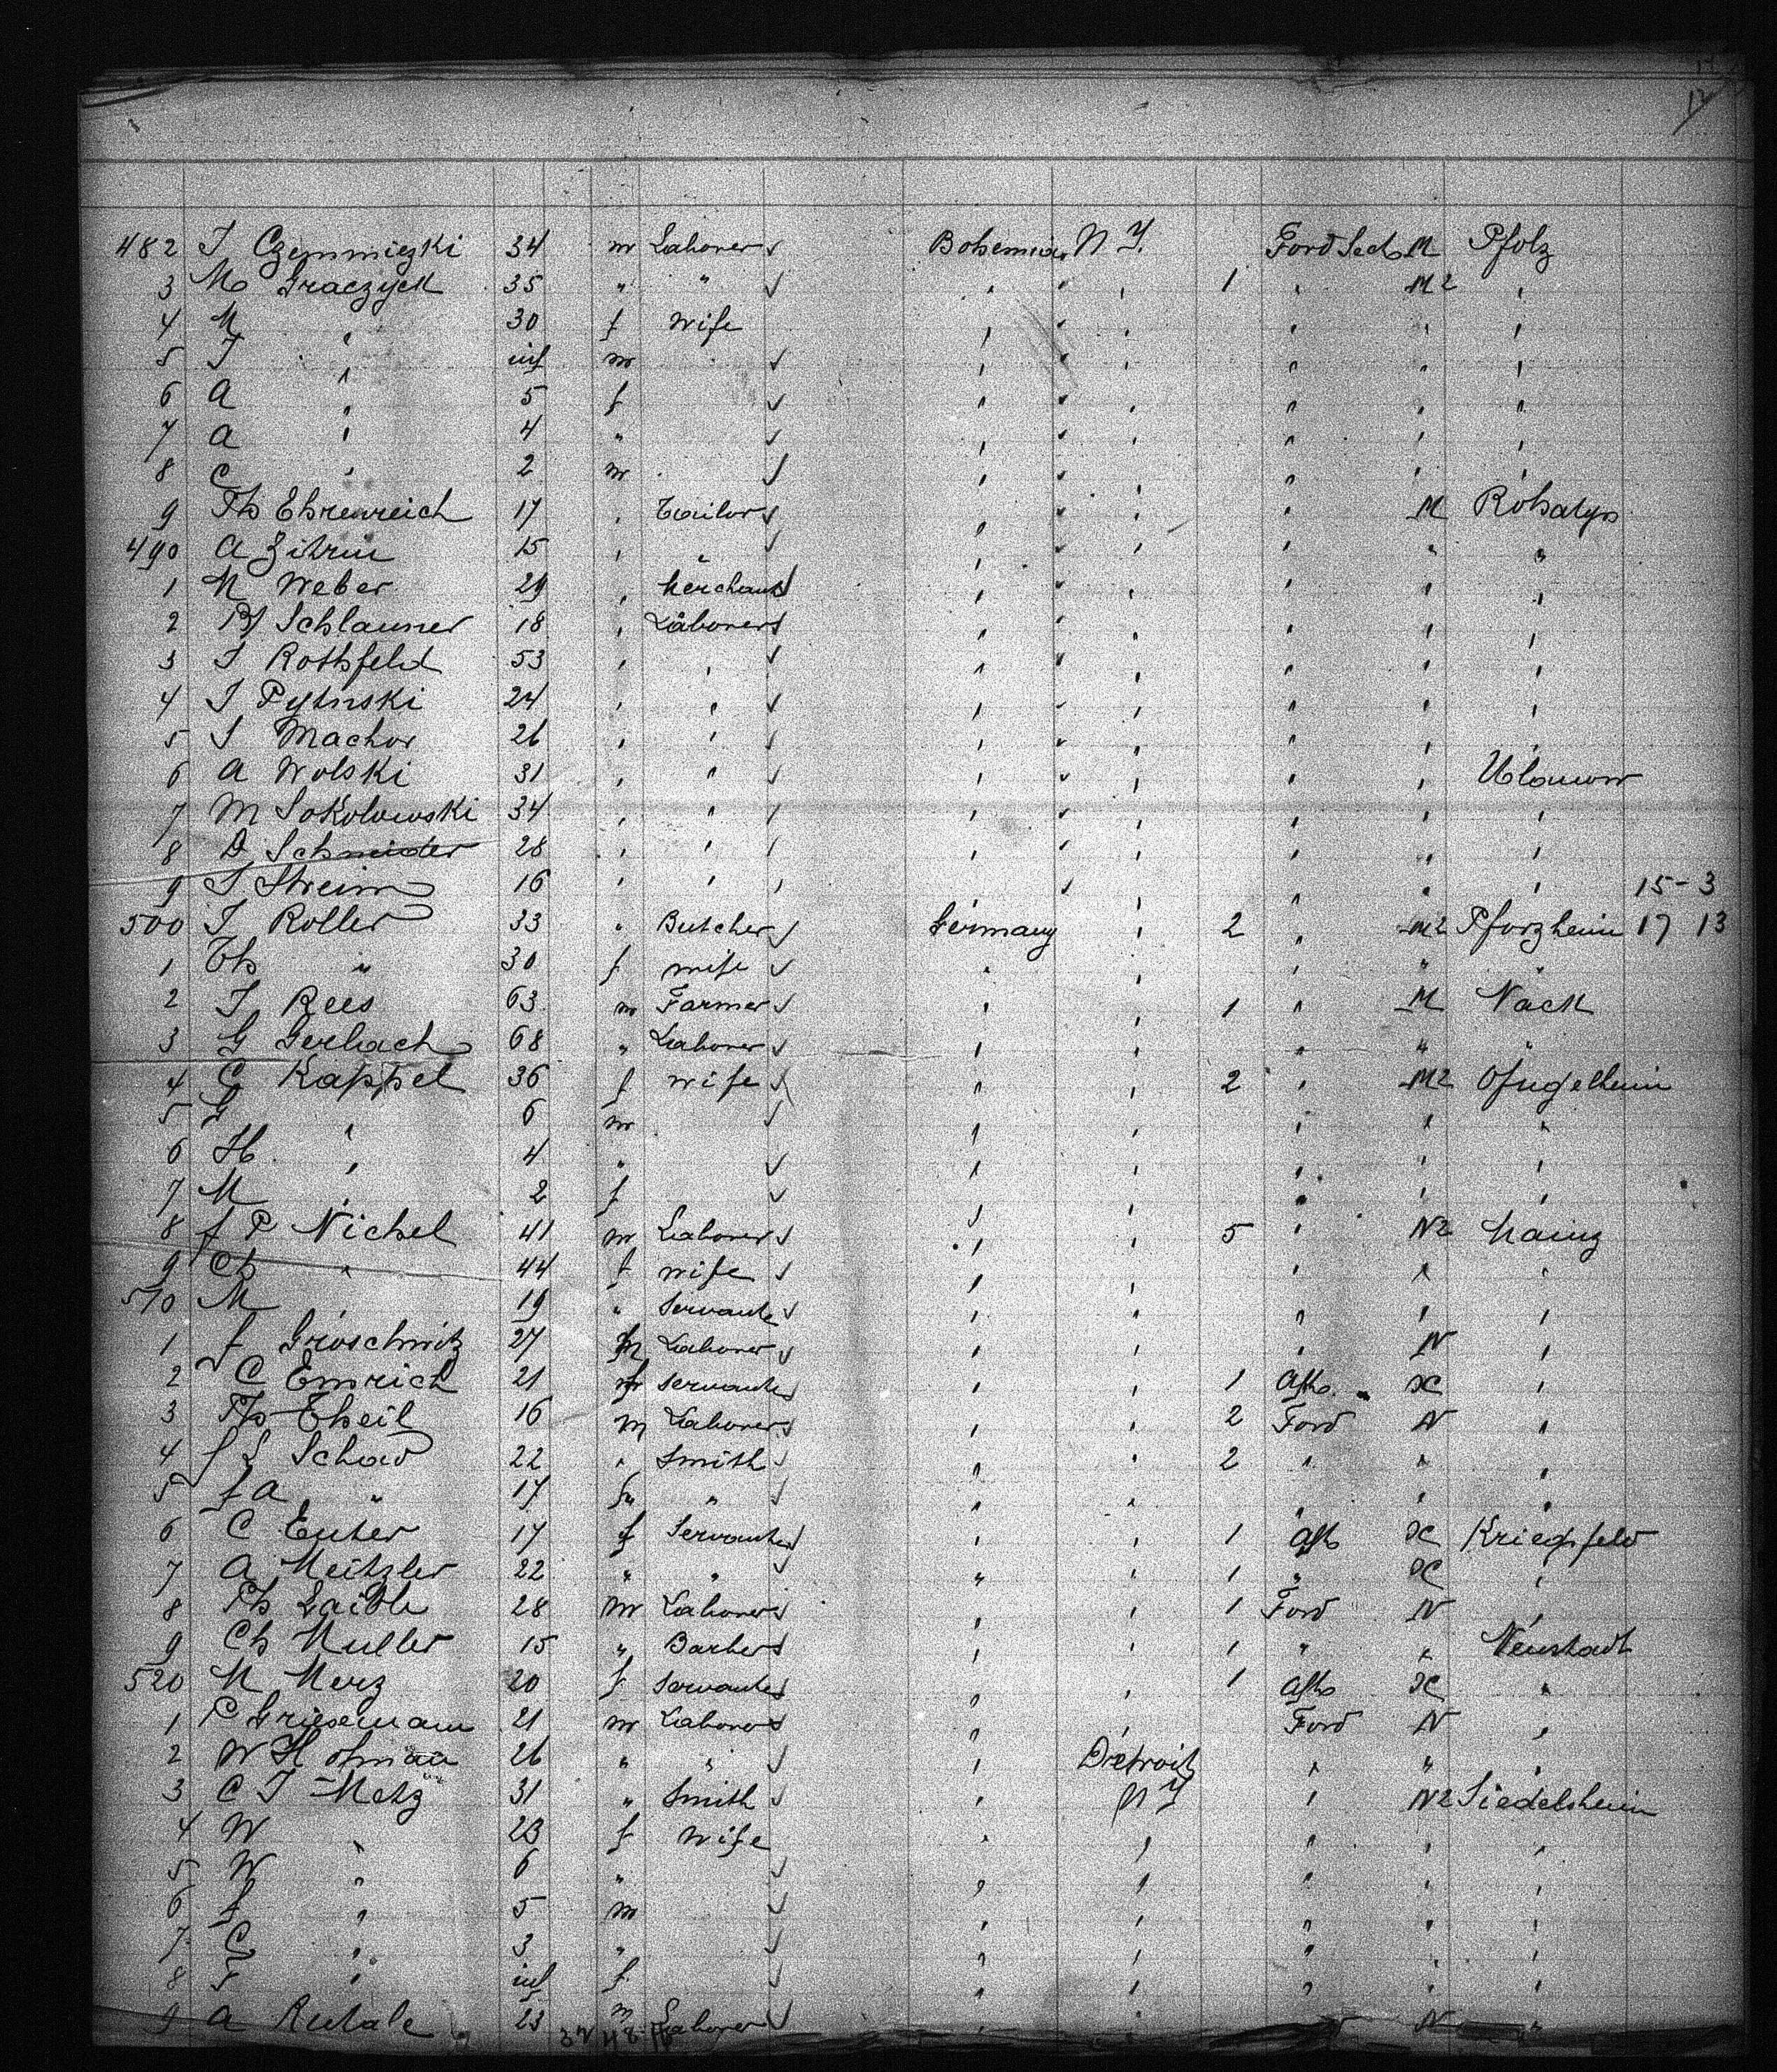 12
482 J Czemmiezki 34 m Laborer Bohemia N Y. Ford Sech M Pfolz
3 M Graczyck 35 " " " " 1 " M2 "
4 M " 30 f Wife " " " " "
5 J " inf m " " " " "
6 A " 5 f " " " " "
7 A " 4 " " " " " "
8 C " 2 m " " " " "
9 Th Ehrenreich 17 " Tailor " " " M Rohatyn
490 A Zitrin 15 " " " " " " "
1 M Weber 29 " Merchant " " " " "
2 Schlauner 18 " Laborer " " " " "
3 J Rothfeld 53 " " " " " " "
4 J Pytnski 24 " " " " " " "
5 S Machor 26 " " " " " " "
6 A Wolski 31 " " " " " " Ulanow
7 M Sokolowski 34 " " " " " " "
8 D Schneider 28 " " " " " " "
9 S Streim 16 " " " " " " " 15-3
500 J Roller 33 " Butcher Germany " 2 " M2 Pforzheim 17 13
1 Th " 30 f wife " " " " "
2 J Rees 63 m Farmer " " 1 " M Nack
3 G Gerlach 68 " Laborer " " " " "
4 C Kappel 36 f wife " " 2 " M2
5 G " 6 m " " " " "
6 H " 4 " " " " " "
7 M " 2 f " " " " "
8 f P Nichel 41 m Laborer " " 5 " N2 Mainz
9 Ch " 44 f wife " " " " "
510 M " 19 " Servante " " " " "
1 f Groschwitz 27 m Laborer " " " N "
2 C Emrich 21 f Servante " " 1 "
3 Th Theil 16 m Laborer " " 2 Ford N "
4 f L Schad 22 " Smith " " 2 " " "
5 f A " 17 " " " " " " "
6 C Euler 17 f Servante " " 1 Kriegsfeld
7 A Meitzler 22 " " " " 1 " "
8 Ph Laible 28 m Laborer " " 1 Ford N "
9 Ch Muller 15 " Barber " " 1 " " Neustadt
520 M Merz 20 f Servante " " 1 "
1 P Griesemann 21 m Laborer " " Ford N "
2 W Hofman 26 " " " Detroit " " "
3 C J Metz 31 " Smith " N Y " N2 Siedelsheim
4 W " 23 f Wife " " " " "
5 W " 6 " " " " " "
6 f " 5 m " " " " "
7 C " 3 " " " " " "
8 " inf f " " " " "
9 A Rutale 23 m Laborer " " " N "